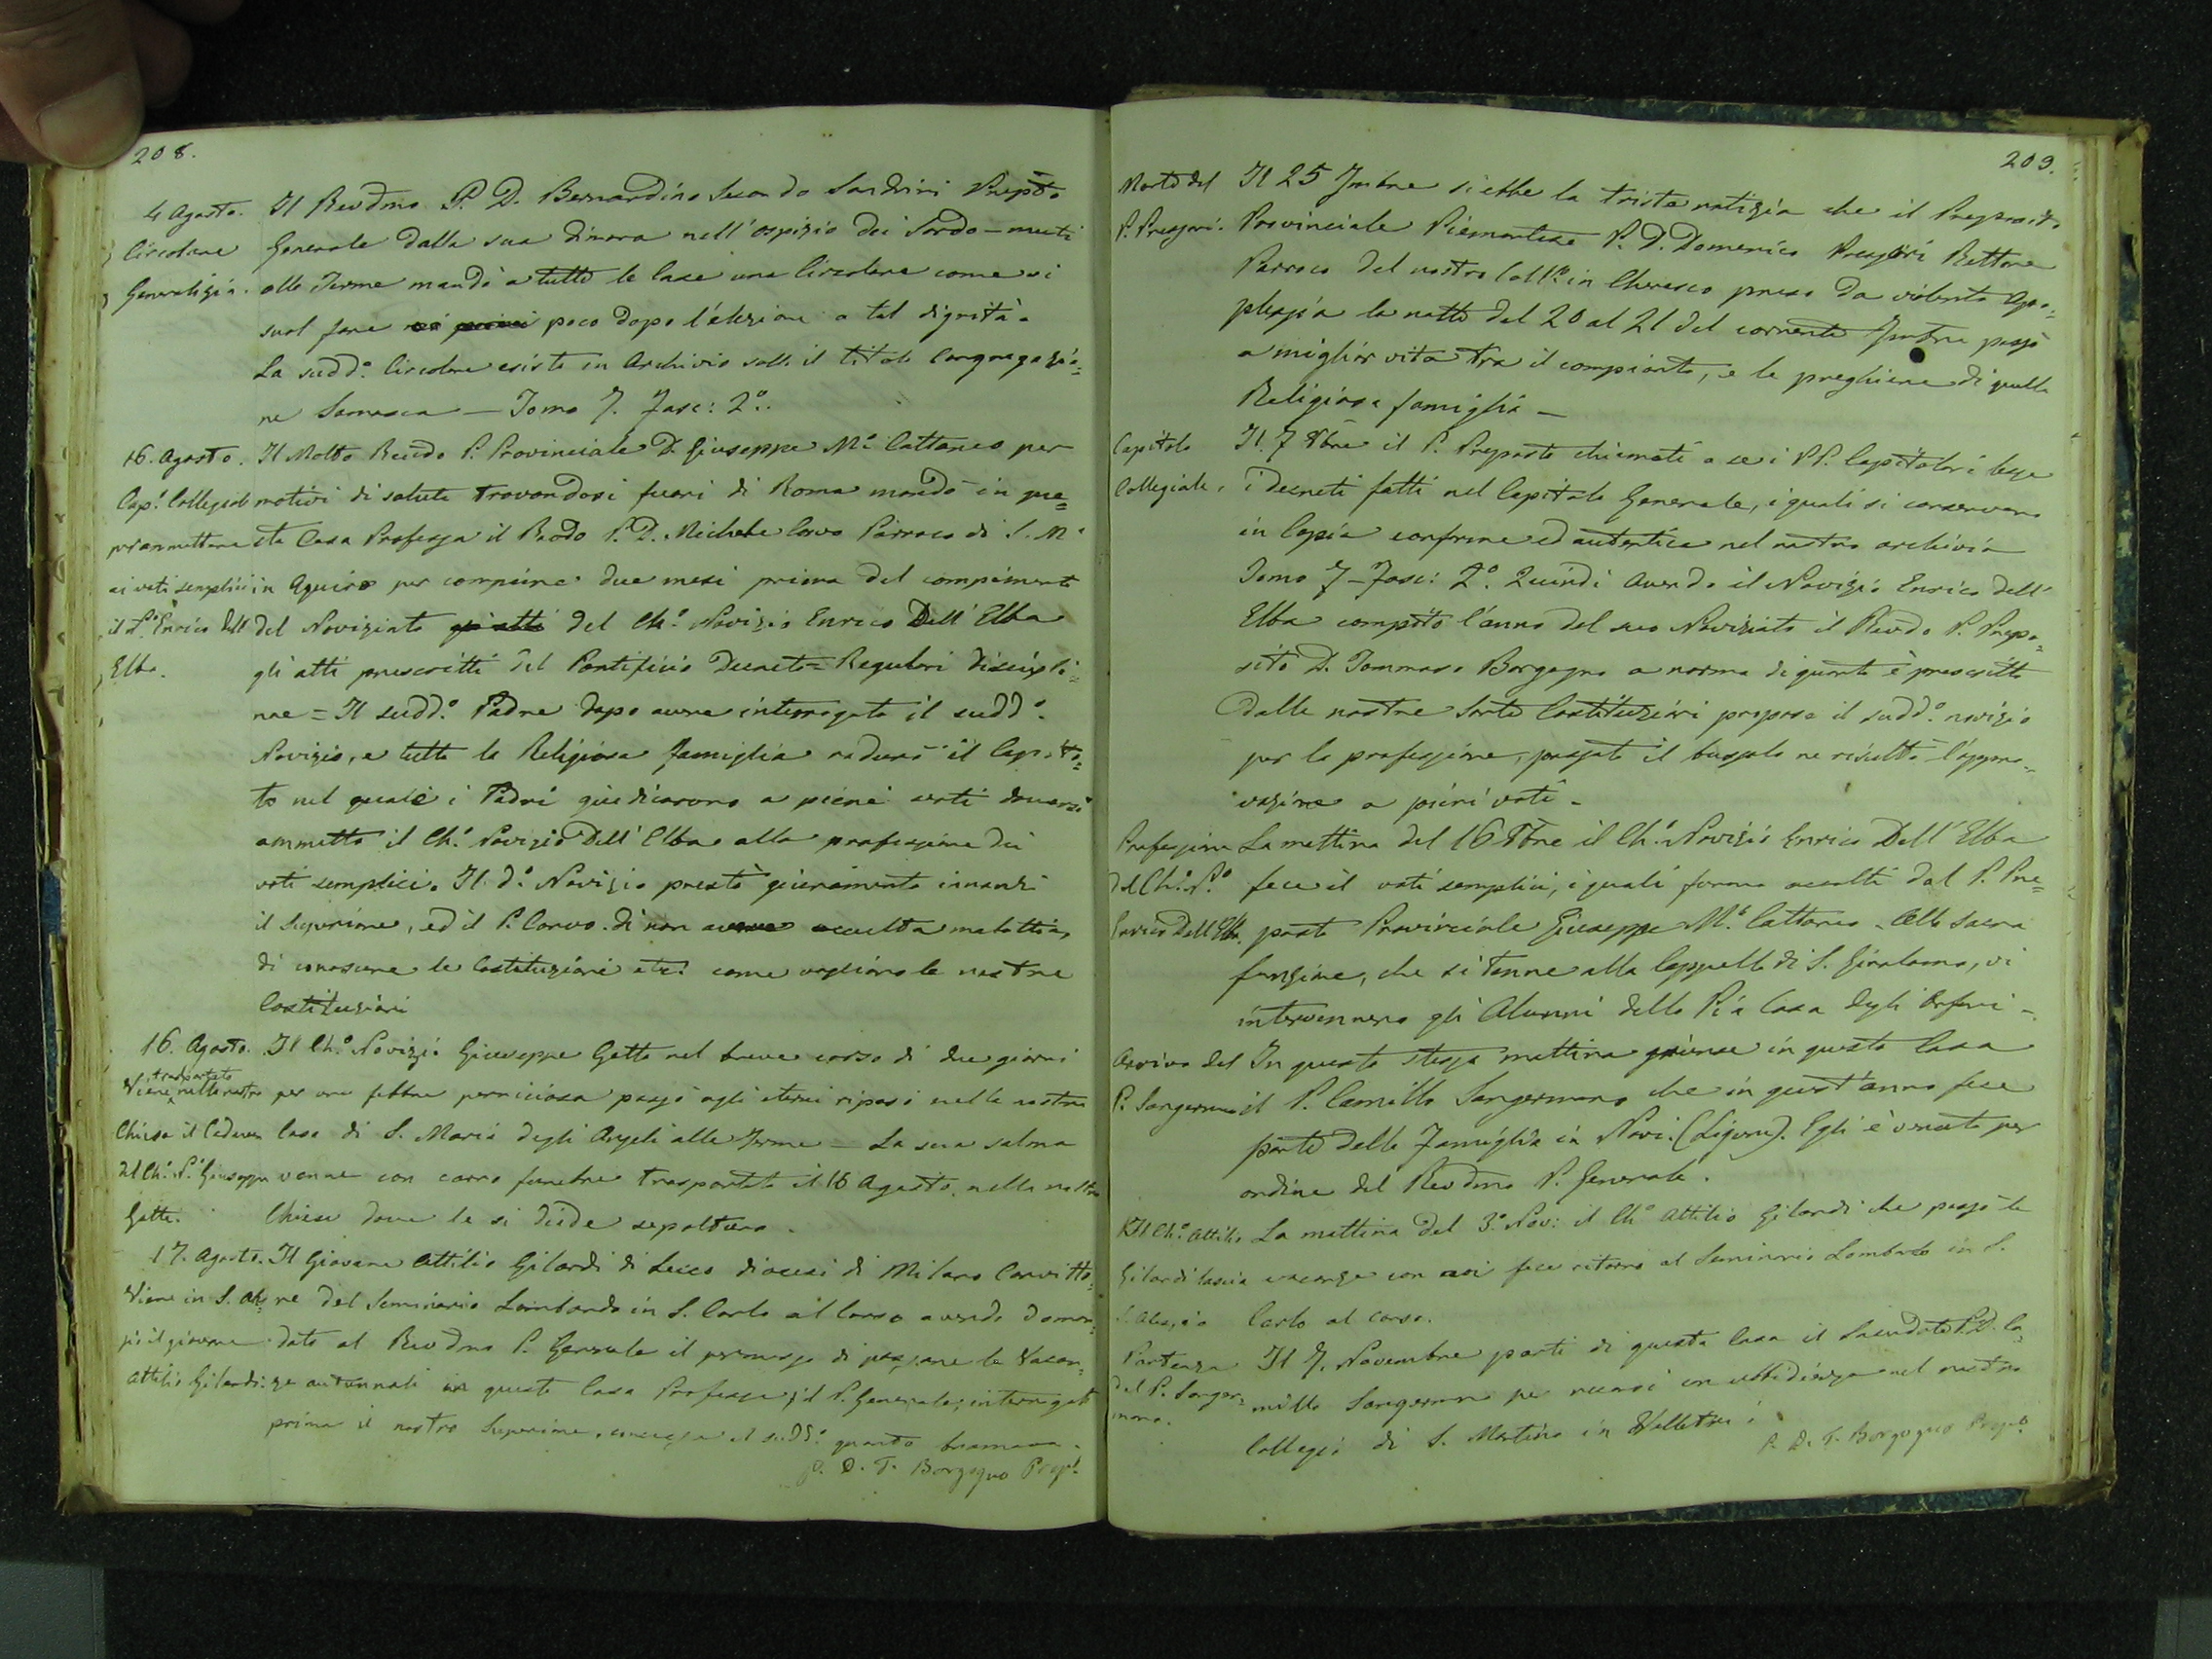 208.
4 Agosto. Il Revdmo P. D. Bernardino Secondo Sandrini Prepto
Circolare Generale dalla sua dimora nell'ospizio dei Sordo-muti
Generalizia. alle Terme mandò a tutte le Case una Circolare come si
suol fare poco dopo l'elezione a tal dignità.
La sudd.ª Circolare esiste in Archivio sotto il titolo Congregazio=
ne Somasca — Tomo 7. Fasc: 2º.
16. Agosto. Il Molto Revdo P. Provinciale D. Giuseppe M.ª Cattaneo per
Cap.º Collegiale motivi di salute trovandosi fuori di Roma mandò in que=
per ammettere sta Casa Professa il Revdo P. D. Michele Corvo Parroco di S. M.ª
ai voti semplici in Aquiro per compiere due mesi prima del compimento
il N.º Enrico Dell' del Noviziato gli atti del Ch.º Novizio Enrico Dell'Elba
Elba. gli atti prescritti del Pontificio Decreto = Regulari discipli=
nae = Il sudd.º Padre dopo avere interrogato il sudd.º
Novizio, e tutta la Religiosa famiglia radunò il Capito=
to nel quale i Padri giudicarono a pieni voti doversi
ammette il Ch.º Novizio Dell'Elba alla professione dei
voti semplici. Il d.º Novizio prestò giuramento innanzi
il Superiore, ed il P. Corvo di non avere occulta malattia,
di conoscere le Costituzioni etc: come vogliono le nostre
Costituzioni
16. Agosto. Il Ch.º Novizio Giuseppe Gatte nel breve corso di due giorni
Viene trasportato nella nostra per una febbre perniciosa passò agli eterni riposi nella nostra
Chiesa il Cadavere Casa di S. Maria degli Angeli alle Terme — La sua salma
del Ch.º N.º Giuseppe venne con carro funebre trasportata il 16 Agosto nella nostra
Gatte. Chiesa dove le si diede sepoltura.
17. Agosto. Il Giovane Attilio Gilardi di Lecco diocesi di Milano Convitto=
Viene in S. Ales= re del Seminario Lombardo in S. Carlo al Corso avendo doman=
sio il giovane dato al Revdmo P. Generale il permesso di passare le Vacan=
Attilio Gilardi. ze autunnali in questa Casa Professa; il P. Generale, interrogato
prima il nostro Superiore, concesse al sudd.º quanto bramava.
P. D. T. Borgogno Prep.to
209.
Morte del Il 25 7mbre si ebbe la trista notizia che il Preposito
P. Pressori. Provinciale Piemontese P. D. Domenico Pressori Rettore
Parroco del nostro Coll.º in Cherasco preso da violenta Apo=
plessia la notte del 20 al 21 del corrente 7mbre passò
a miglior vita tra il compianto, e le preghiere di quella
Religiosa famiglia —
Capitolo Il 7 8bre il P. Preposto chiamati a se i PP. Capitolari lesse
Collegiale. i decreti fatti nel Capitolo Generale, i quali si conservano
in Copia conforme ed autentica nel nostro archivio
Tomo 7 - Fasc: 2º. Quindi avendo il Novizio Enrico Dell'
Elba compito l'anno del suo Noviziato il Revdo P. Prepo=
sito D. Tommaso Borgogno a norma di quanto è prescritto
dalle nostre Sante Costituzioni propose il sudd.º novizio
per la professione, passato il bussolo ne risultò l'appro=
vazione a pieni voti.
Professione La mattina del 16 8bre il Ch.º Novizio Enrico Dell'Elba
del Ch.º N.º fece il voti semplici, i quali furono accolti dal P. Pre=
Enrico Dell'Elba. posto Provinciale Giuseppe M.ª Cattaneo. Alla sacra
funzione, che si tenne alla Cappella di S. Girolamo, vi
intervennero gli Alunni della Pia Casa degli Orfani.
Arrivo del In questa stessa mattina giunse in questa Casa
P. Sangermano il P. Camillo Sangermano che in quest'anno fece
parte della Famiglia in Novi. (Ligure). Egli è venuto per
ordine del Revdmo P. Generale.
Il Ch.º Attilio La mattina del 3.º Nov: il Ch.º Attilio Gilardi che passò le
Gilardi lascia vacanze con noi fece ritorno al Seminario Lombardo in S.
S. Alessio Carlo al Corso.
Partenza Il 7. Novembre partì di questa Casa il Sacerdote P. D. Ca=
del P. Sanger= millo Sangermano per recarsi in ubbidienza nel nostro
mano. Collegio di S. Martino in Velletri.
P. D. T. Borgogno Prep.to